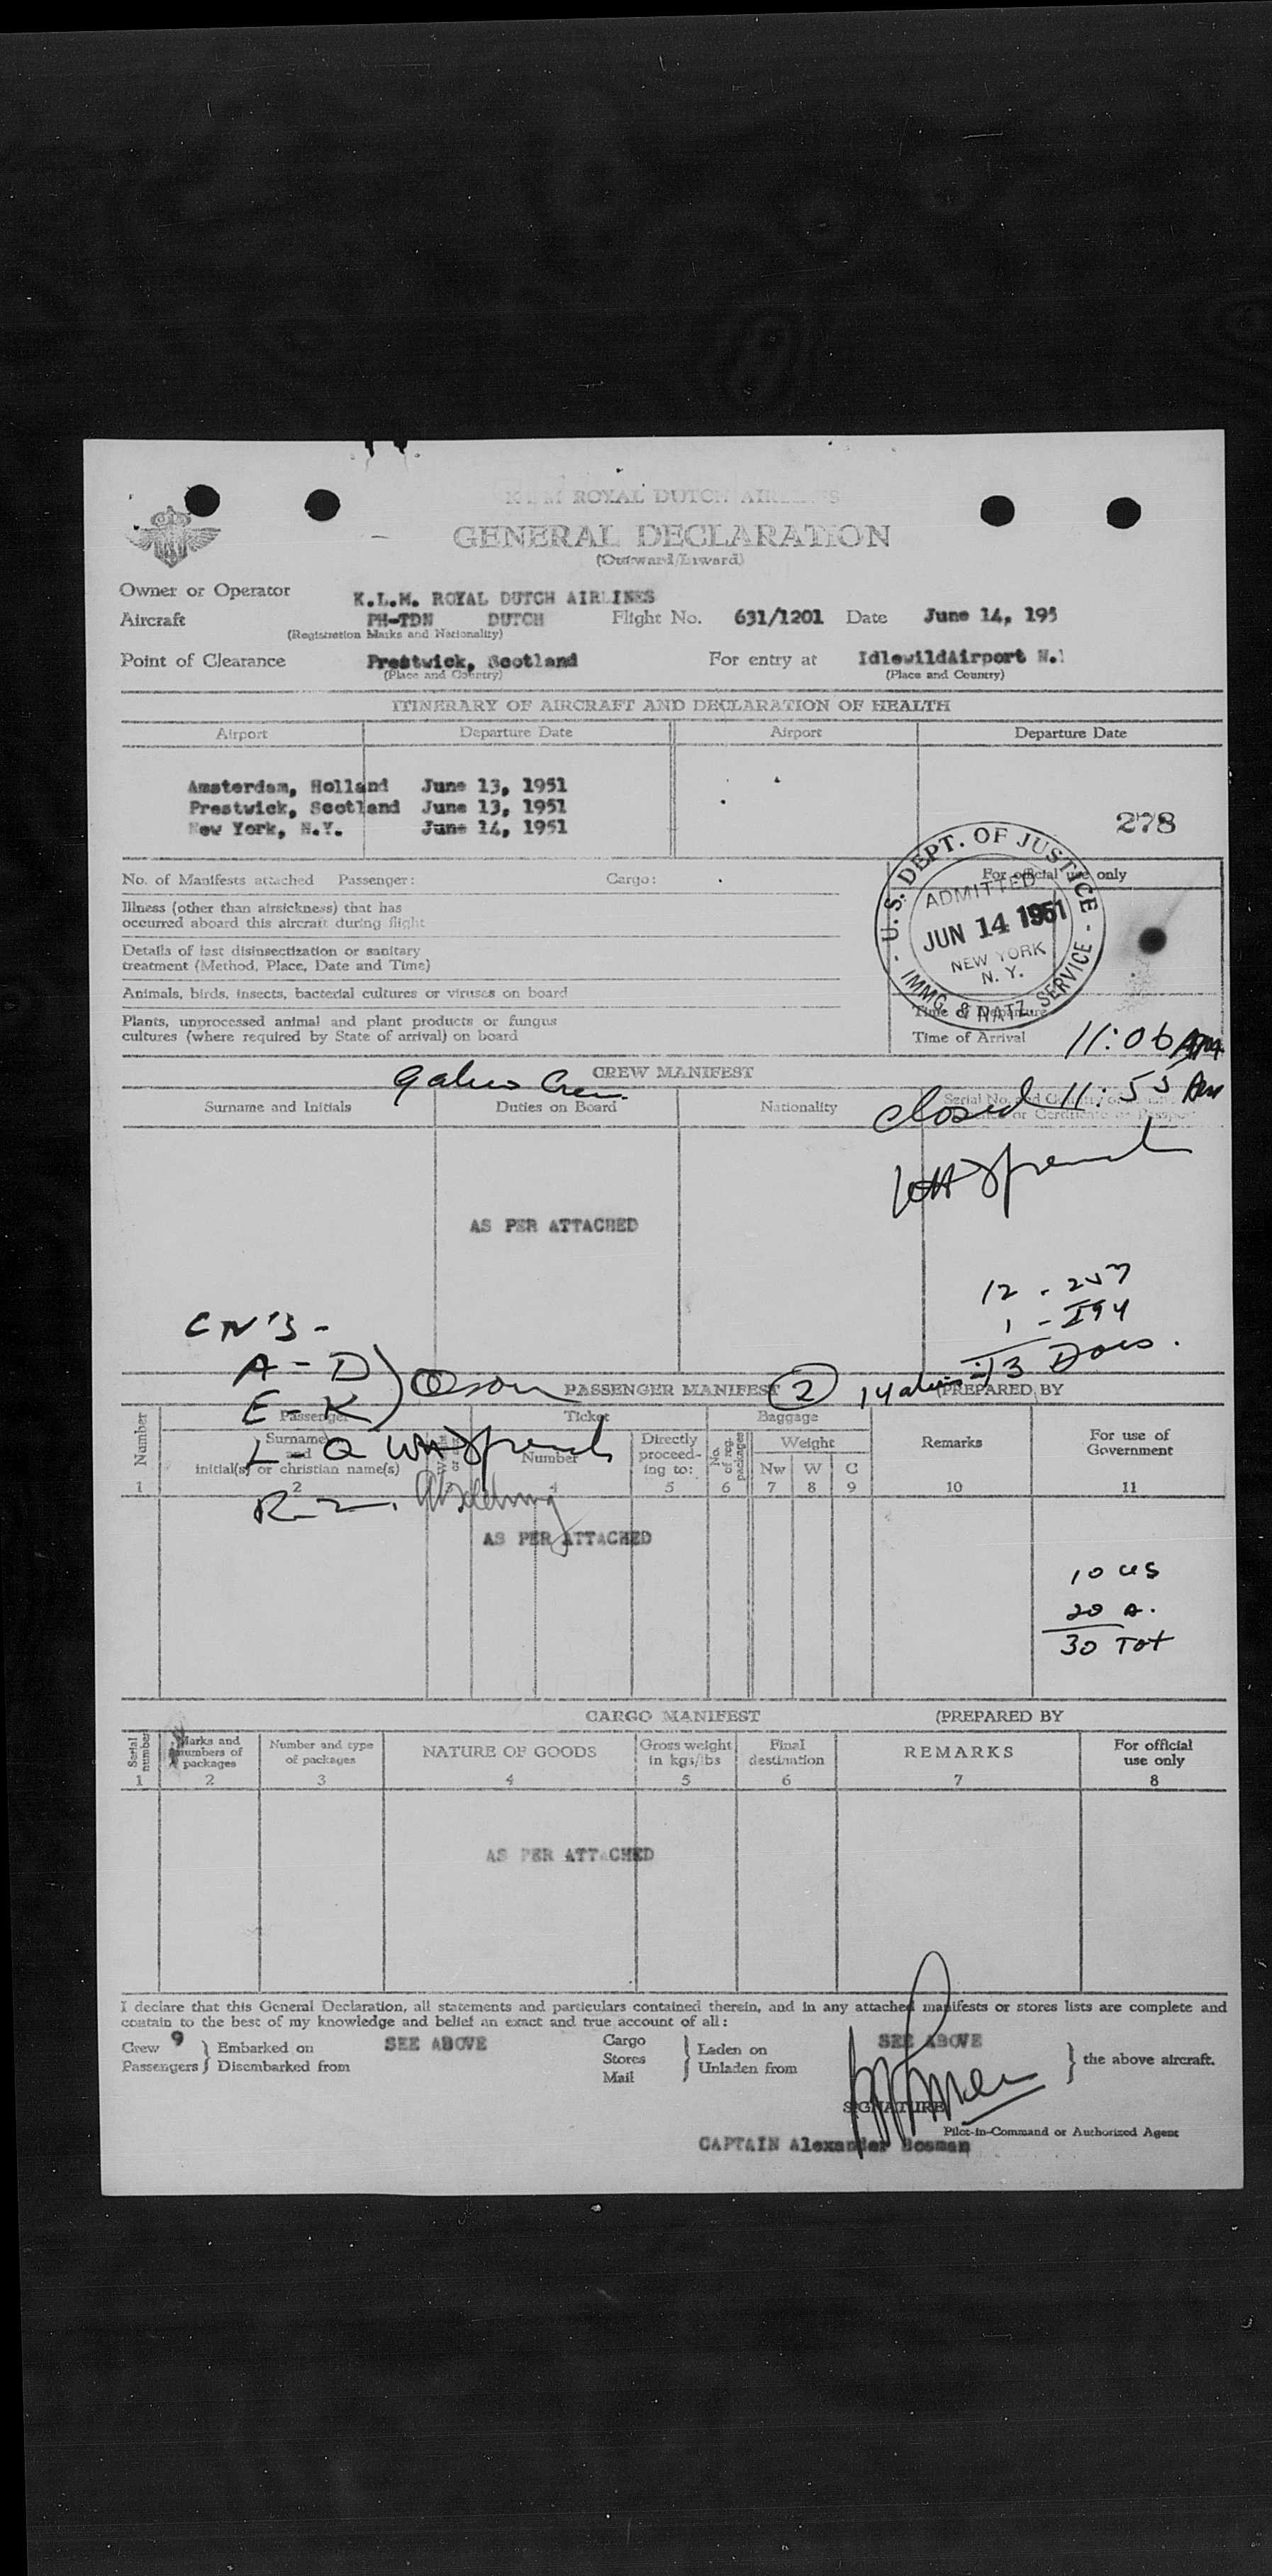 K.L.M ROYAL DUTCH AIRLINES
GENERAL DECLARATION
(Outward/Inward)
Owner or Operator K.L.M. ROYAL DUTCH AIRLINES
Aircraft PH-TDN DUTCH Flight No. 631/1201 Date June 14, 195
(Registration Marks and Nationality)
Point of Clearance Prestwick, Scotland For entry at IdlewildAirport N.
(Place and Country) (Place and Country)
ITINERARY OF AIRCRAFT AND DECLARATION OF HEALTH
Airport Departure Date Airport Departure Date
Amsterdam, Holland June 13, 1951
Prestwick, Scotland June 13, 1951
New York, N.Y. June 14, 1951
278
No. of Manifests attached Passenger: Cargo: For official use only
Illness (other than airsickness) that has
occurred aboard this aircraft during flight
Details of last disinsectization or sanitary
treatment (Method, Place, Date and Time)
Animals, birds, insects, bacterial cultures or viruses on board
Plants, unprocessed animal and plant products or fungus
cultures (where required by State of arrival) on board
U.S. DEPT. OF JUSTICE
ADMITTED
JUN 14 1951
NEW YORK
N. Y.
IMMG. & NATZ. SERVICE
Time of Departure
Time of Arrival 11:06 AM
CREW MANIFEST
9 alien Crew
closed 11:55 Am
Surname and Initials Duties on Board Nationality Serial No. and Country of
or Certificate or Passport
AS PER ATTACHED
12 - 257
1 - I94
13 Docs.
CN'3 -
A - D
E - K
Olson
L - Q
R - Z.
PASSENGER MANIFEST 2 14 aliens (PREPARED BY
Number Passenger Ticket Baggage
Surname and initial(s) or christian name(s) Number Directly proceeding to: No. of reg. packages Weight Remarks For use of Government
Nw W C
1 2 4 5 6 7 8 9 10 11
AS PER ATTACHED
10 US
20 A.
30 Tot
CARGO MANIFEST (PREPARED BY
Serial number Marks and numbers of packages Number and type of packages NATURE OF GOODS Gross weight in kgs/lbs Final destination REMARKS For official use only
1 2 3 4 5 6 7 8
AS PER ATTACHED
I declare that this General Declaration, all statements and particulars contained therein, and in any attached manifests or stores lists are complete and
contain to the best of my knowledge and belief an exact and true account of all:
Crew 9 Embarked on SEE ABOVE Cargo Laden on SEE ABOVE
Passengers Disembarked from Stores Unladen from the above aircraft.
Mail
SIGNATURE
Pilot-in-Command or Authorized Agent
CAPTAIN Alexander Bosman